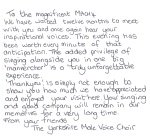 To the magnificent MACHs,
We have waited twelve months to meet
with you and once again hear your
inspirational voices. This evening has
been worth every minute of that
anticipation. The added privilege of
singing alongside you in one big
"mannechor" is a truly unforgettable
experience.
'Thankyou' is simply not enough to
show you how much we have appreciated
and enjoyed your visit. Your singing
and good company will remain in our
memories for a very long time.
From your friends
The Yorkshire Male Voice Choir